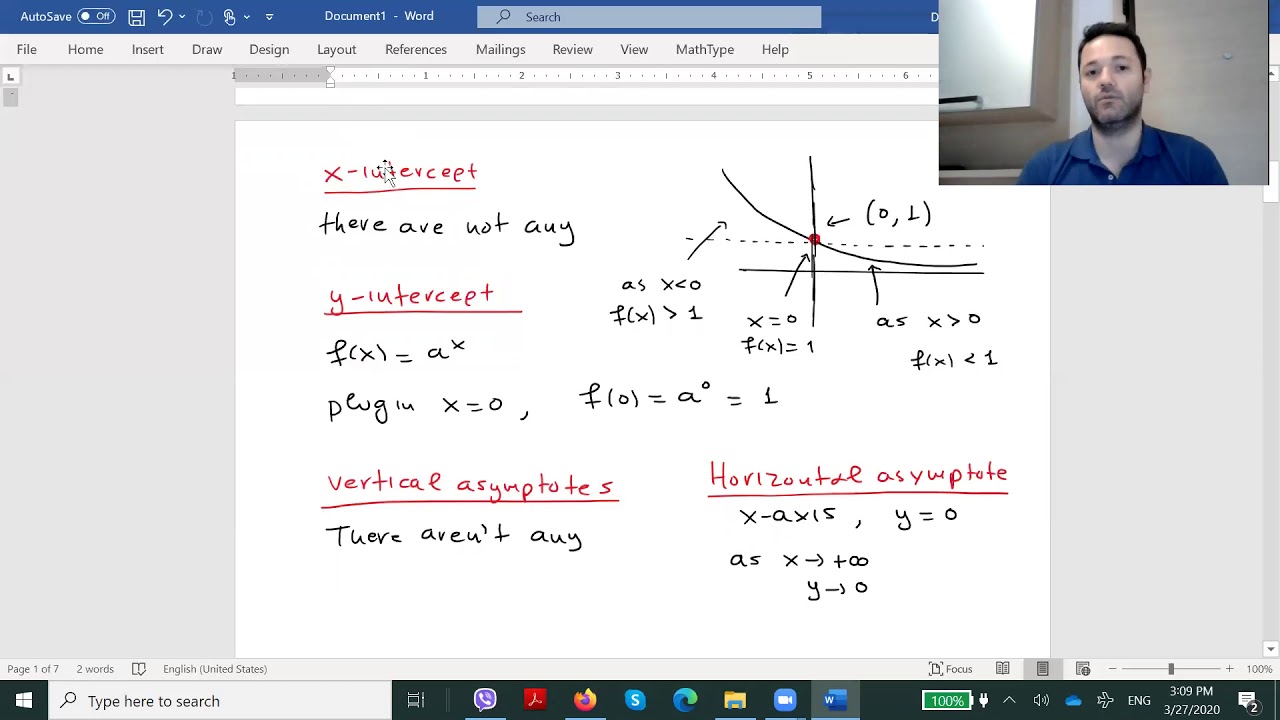 AutoSave Off Document1 - Word Search D
File Home Insert Draw Design Layout References Mailings Review View MathType Help
1 1 2 3 4 5 6
x-intercept
there are not any
(0, 1)
as x<0
f(x) > 1
x=0
f(x)=1
as x>0
f(x) < 1
y-intercept
f(x) = a^x
plug in x=0, f(0) = a^0 = 1
vertical asymptotes
There aren't any
Horizontal asymptote
x-axis, y=0
as x→+∞
y→0
Page 1 of 7 2 words English (United States) Focus 100%
Type here to search 100% ENG 3:09 PM
3/27/2020 2